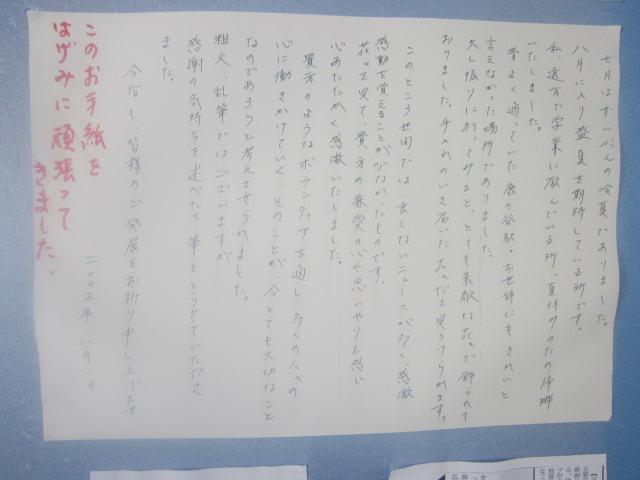 七月はずいぶんの冷夏でありました。
八月に入り盛夏を期待している所です。
私、遠方で学業に励んでいる所、夏休みのため帰郷
いたしました。
昔よく通っていた鹿の谷駅。お世辞にもきれいと
言えなかった場所でありました。
久し振りに行ってみると、とても素敵な花々で飾られて
おりました。手入れのいき届いた花々だと見うけられます。
このところ世間では、良くないニュースが多く、感激
感動を覚えることが少なかったものです。
花々を見て、貴方の兼愛の心や思いやりを感じ
心あたたかく感激いたしました。
貴方のようなボランティアを通し、多くの人々の
心に働きかけていく、そのことが、今とても大切なこと
なのであろうと考えさせられました。
粗文、乱筆ではございますが
感謝の気持ちを述べたく筆をとらせていただき
ました。
今後も、皆様のご発展をお祈り申し上げます
二〇〇三年 八月一日
このお手紙を
はげみに頑張って
きました。